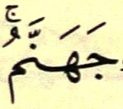 جَهَنَّمُ ۚ